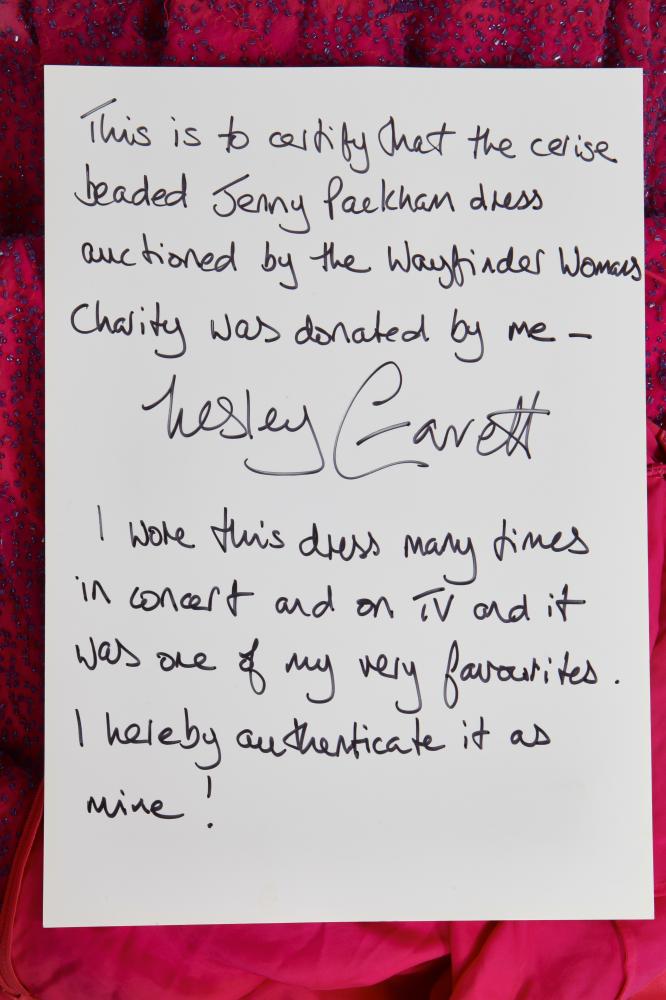 This is to certify that the cerise
beaded Jenny Packham dress
auctioned by the Wayfinder Womans
Charity was donated by me –
Lesley Garrett
I wore this dress many times
in concert and on TV and it
was one of my very favourites.
I hereby authenticate it as
mine!